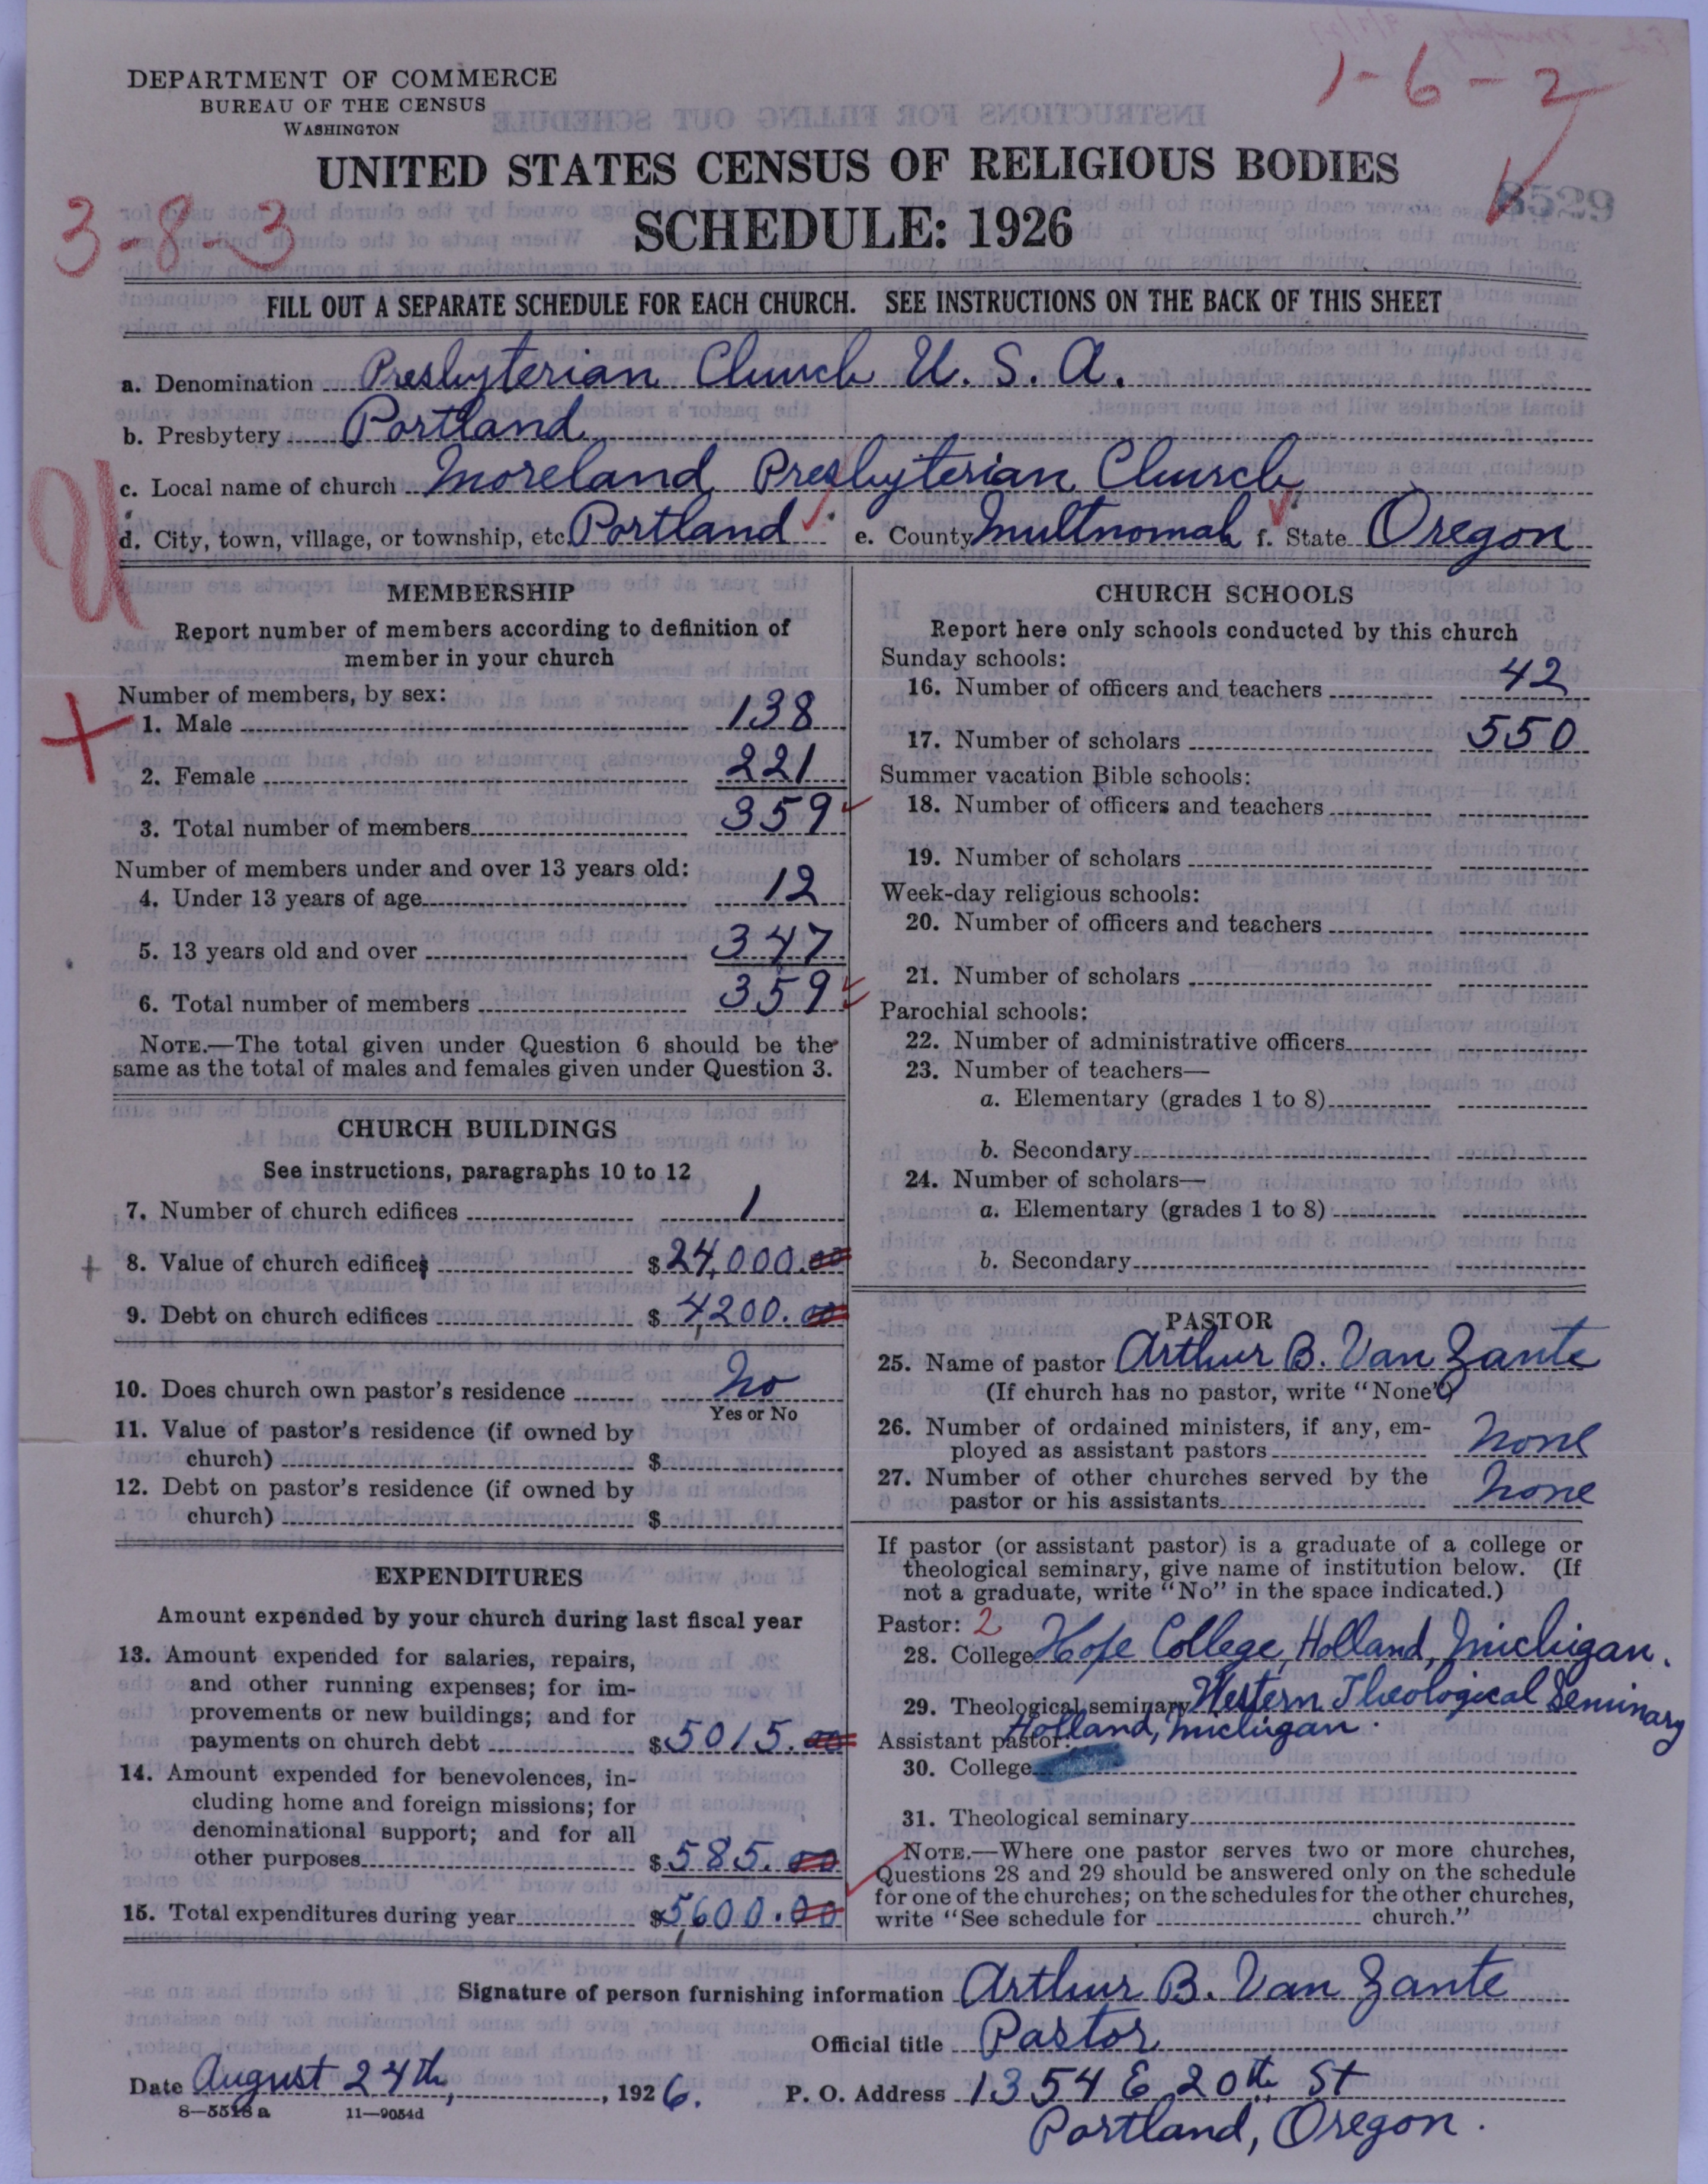 1-6-2
DEPARTMENT OF COMMERCE
BUREAU OF THE CENSUS
WASHINGTON
UNITED STATES CENSUS OF RELIGIOUS BODIES
8529
3-8-3
SCHEDULE: 1926
FILL OUT A SEPARATE SCHEDULE FOR EACH CHURCH. SEE INSTRUCTIONS ON THE BACK OF THIS SHEET
a. Denomination Presbyterian Church U. S. A.
b. Presbytery Portland
U
c. Local name of church Moreland Presbyterian Church
d. City, town, village, or township, etc. Portland e. County Multnomah f. State Oregon
MEMBERSHIP
Report number of members according to definition of
member in your church
Number of members, by sex:
1. Male 138
2. Female 221
3. Total number of members 359
Number of members under and over 13 years old:
4. Under 13 years of age 12
5. 13 years old and over 347
6. Total number of members 359
NOTE.—The total given under Question 6 should be the
same as the total of males and females given under Question 3.
CHURCH BUILDINGS
See instructions, paragraphs 10 to 12
7. Number of church edifices 1
8. Value of church edifices $24,000.00
9. Debt on church edifices $4,200.00
10. Does church own pastor's residence No
Yes or No
11. Value of pastor's residence (if owned by
church) $
12. Debt on pastor's residence (if owned by
church) $
EXPENDITURES
Amount expended by your church during last fiscal year
13. Amount expended for salaries, repairs,
and other running expenses; for im-
provements or new buildings; and for
payments on church debt $5015.00
14. Amount expended for benevolences, in-
cluding home and foreign missions; for
denominational support; and for all
other purposes $585.00
15. Total expenditures during year $5,600.00
CHURCH SCHOOLS
Report here only schools conducted by this church
Sunday schools:
16. Number of officers and teachers 42
17. Number of scholars 550
Summer vacation Bible schools:
18. Number of officers and teachers
19. Number of scholars
Week-day religious schools:
20. Number of officers and teachers
21. Number of scholars
Parochial schools:
22. Number of administrative officers
23. Number of teachers—
a. Elementary (grades 1 to 8)
b. Secondary
24. Number of scholars—
a. Elementary (grades 1 to 8)
b. Secondary
PASTOR
25. Name of pastor Arthur B. Van Zante
(If church has no pastor, write "None")
26. Number of ordained ministers, if any, em-
ployed as assistant pastors None
27. Number of other churches served by the
pastor or his assistants None
If pastor (or assistant pastor) is a graduate of a college or
theological seminary, give name of institution below. (If
not a graduate, write "No" in the space indicated.)
Pastor: 2
28. College Hope College, Holland, Michigan.
29. Theological seminary Western Theological Seminary
Holland, Michigan.
Assistant pastor:
30. College
31. Theological seminary
NOTE.—Where one pastor serves two or more churches,
Questions 28 and 29 should be answered only on the schedule
for one of the churches; on the schedules for the other churches,
write "See schedule for church."
Signature of person furnishing information Arthur B. Van Zante
Official title Pastor
Date August 24th, 1926. P. O. Address 1354 E. 20th St
8—5518 a 11—9054d
Portland, Oregon.